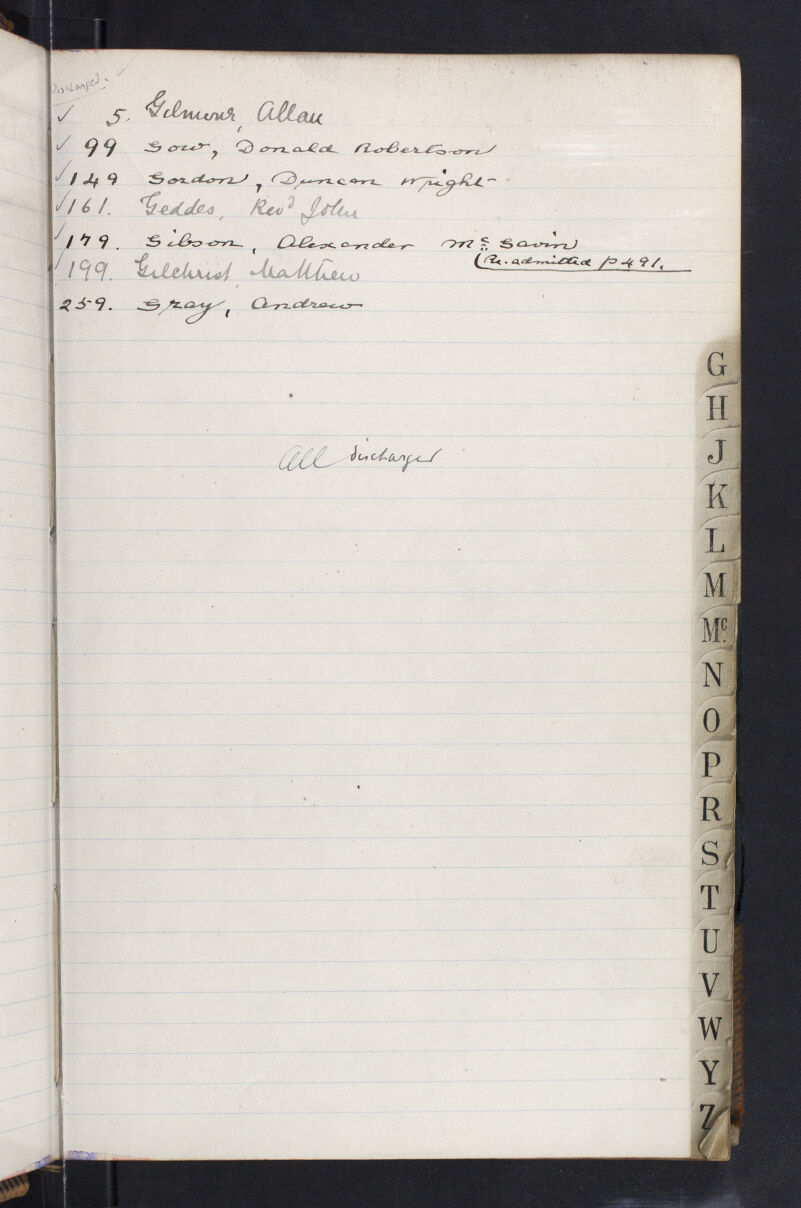 Discharged. ✓
✓ 5. Gilmour, Allan
✓ 99 Gow, Donald Robertson
✓ 149 Gordon, Duncan Wright
✓ 161. Geddes, Revd John
✓ 179. Gibson, Alexander Mc Gavin
(Re. admitted p 491.
✓ 199. Gilchrist, Matthew
259. Gray, Andrew
All discharged
G
H
J
K
L
M
Mc.
N
O
P
R
S
T
U
V
W
Y
Z